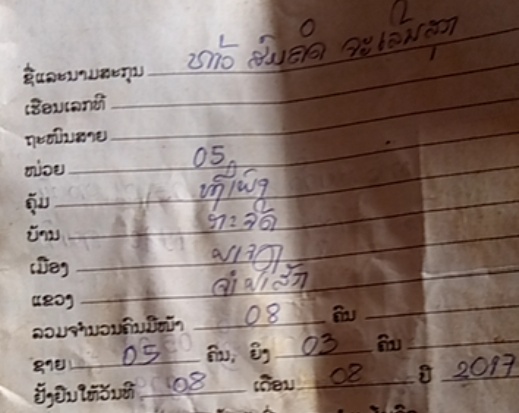 ຊື່ແລະນາມສະກຸນ ທ້າວ ສົມຄິດ ຈະເລີນສຸກ
ເຮືອນເລກທີ
ຖະໜົນສາຍ
ໜ່ວຍ 05
ຄຸ້ມ
ບ້ານ
ເມືອງ
ແຂວງ ຈຳປາສັກ
ລວມຈຳນວນຄົນມີໜ້າ 08 ຄົນ
ຊາຍ 05 ຄົນ, ຍິງ 03 ຄົນ
ຢັ້ງຢືນໃຫ້ວັນທີ 08 ເດືອນ 08 ປີ 2017